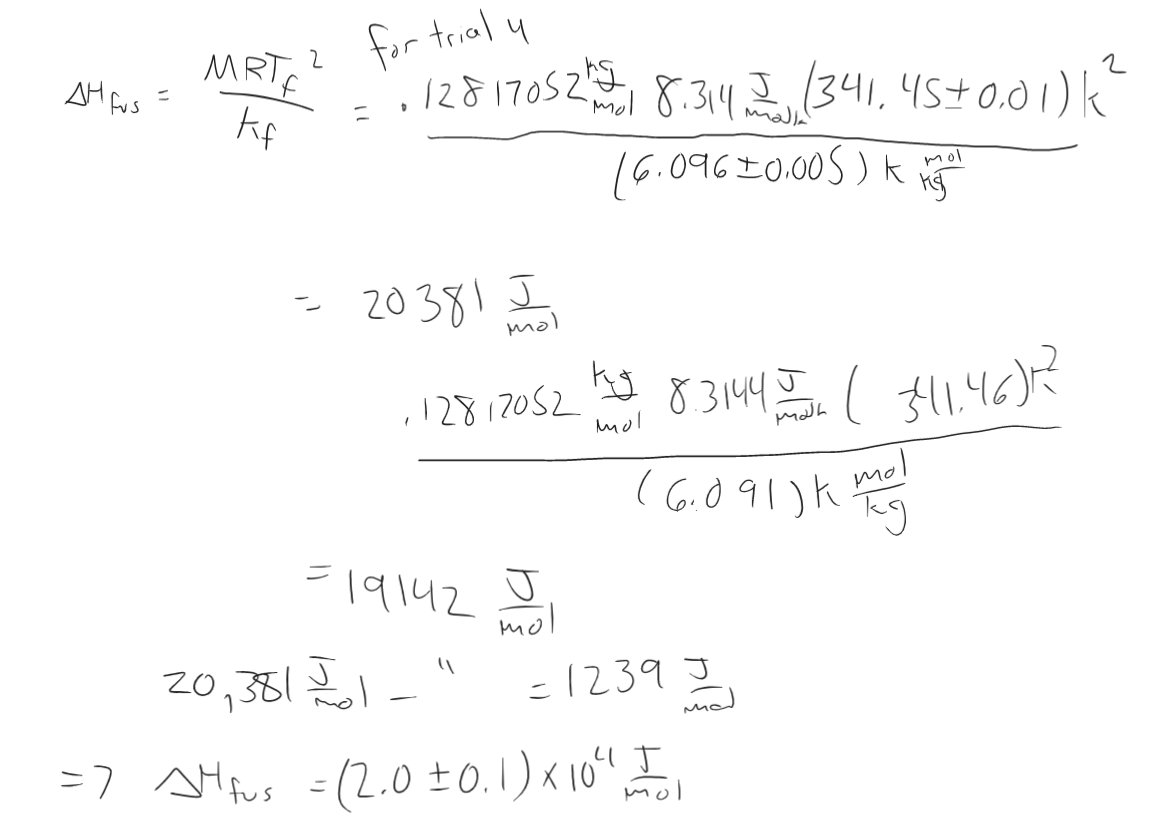 for trial 4
ΔH fus = MRTf² / kf = .12817052 kg/mol 8.314 J/molk (341.45±0.01)k² / (6.096±0.005) k mol/kg
= 20381 J/mol
.12817052 kg/mol 8.3144 J/molk (341.46)k² / (6.091)k mol/kg
= 19142 J/mol
20,381 J/mol - " = 1239 J/mol
=> ΔH fus = (2.0 ± 0.1) × 10⁴ J/mol